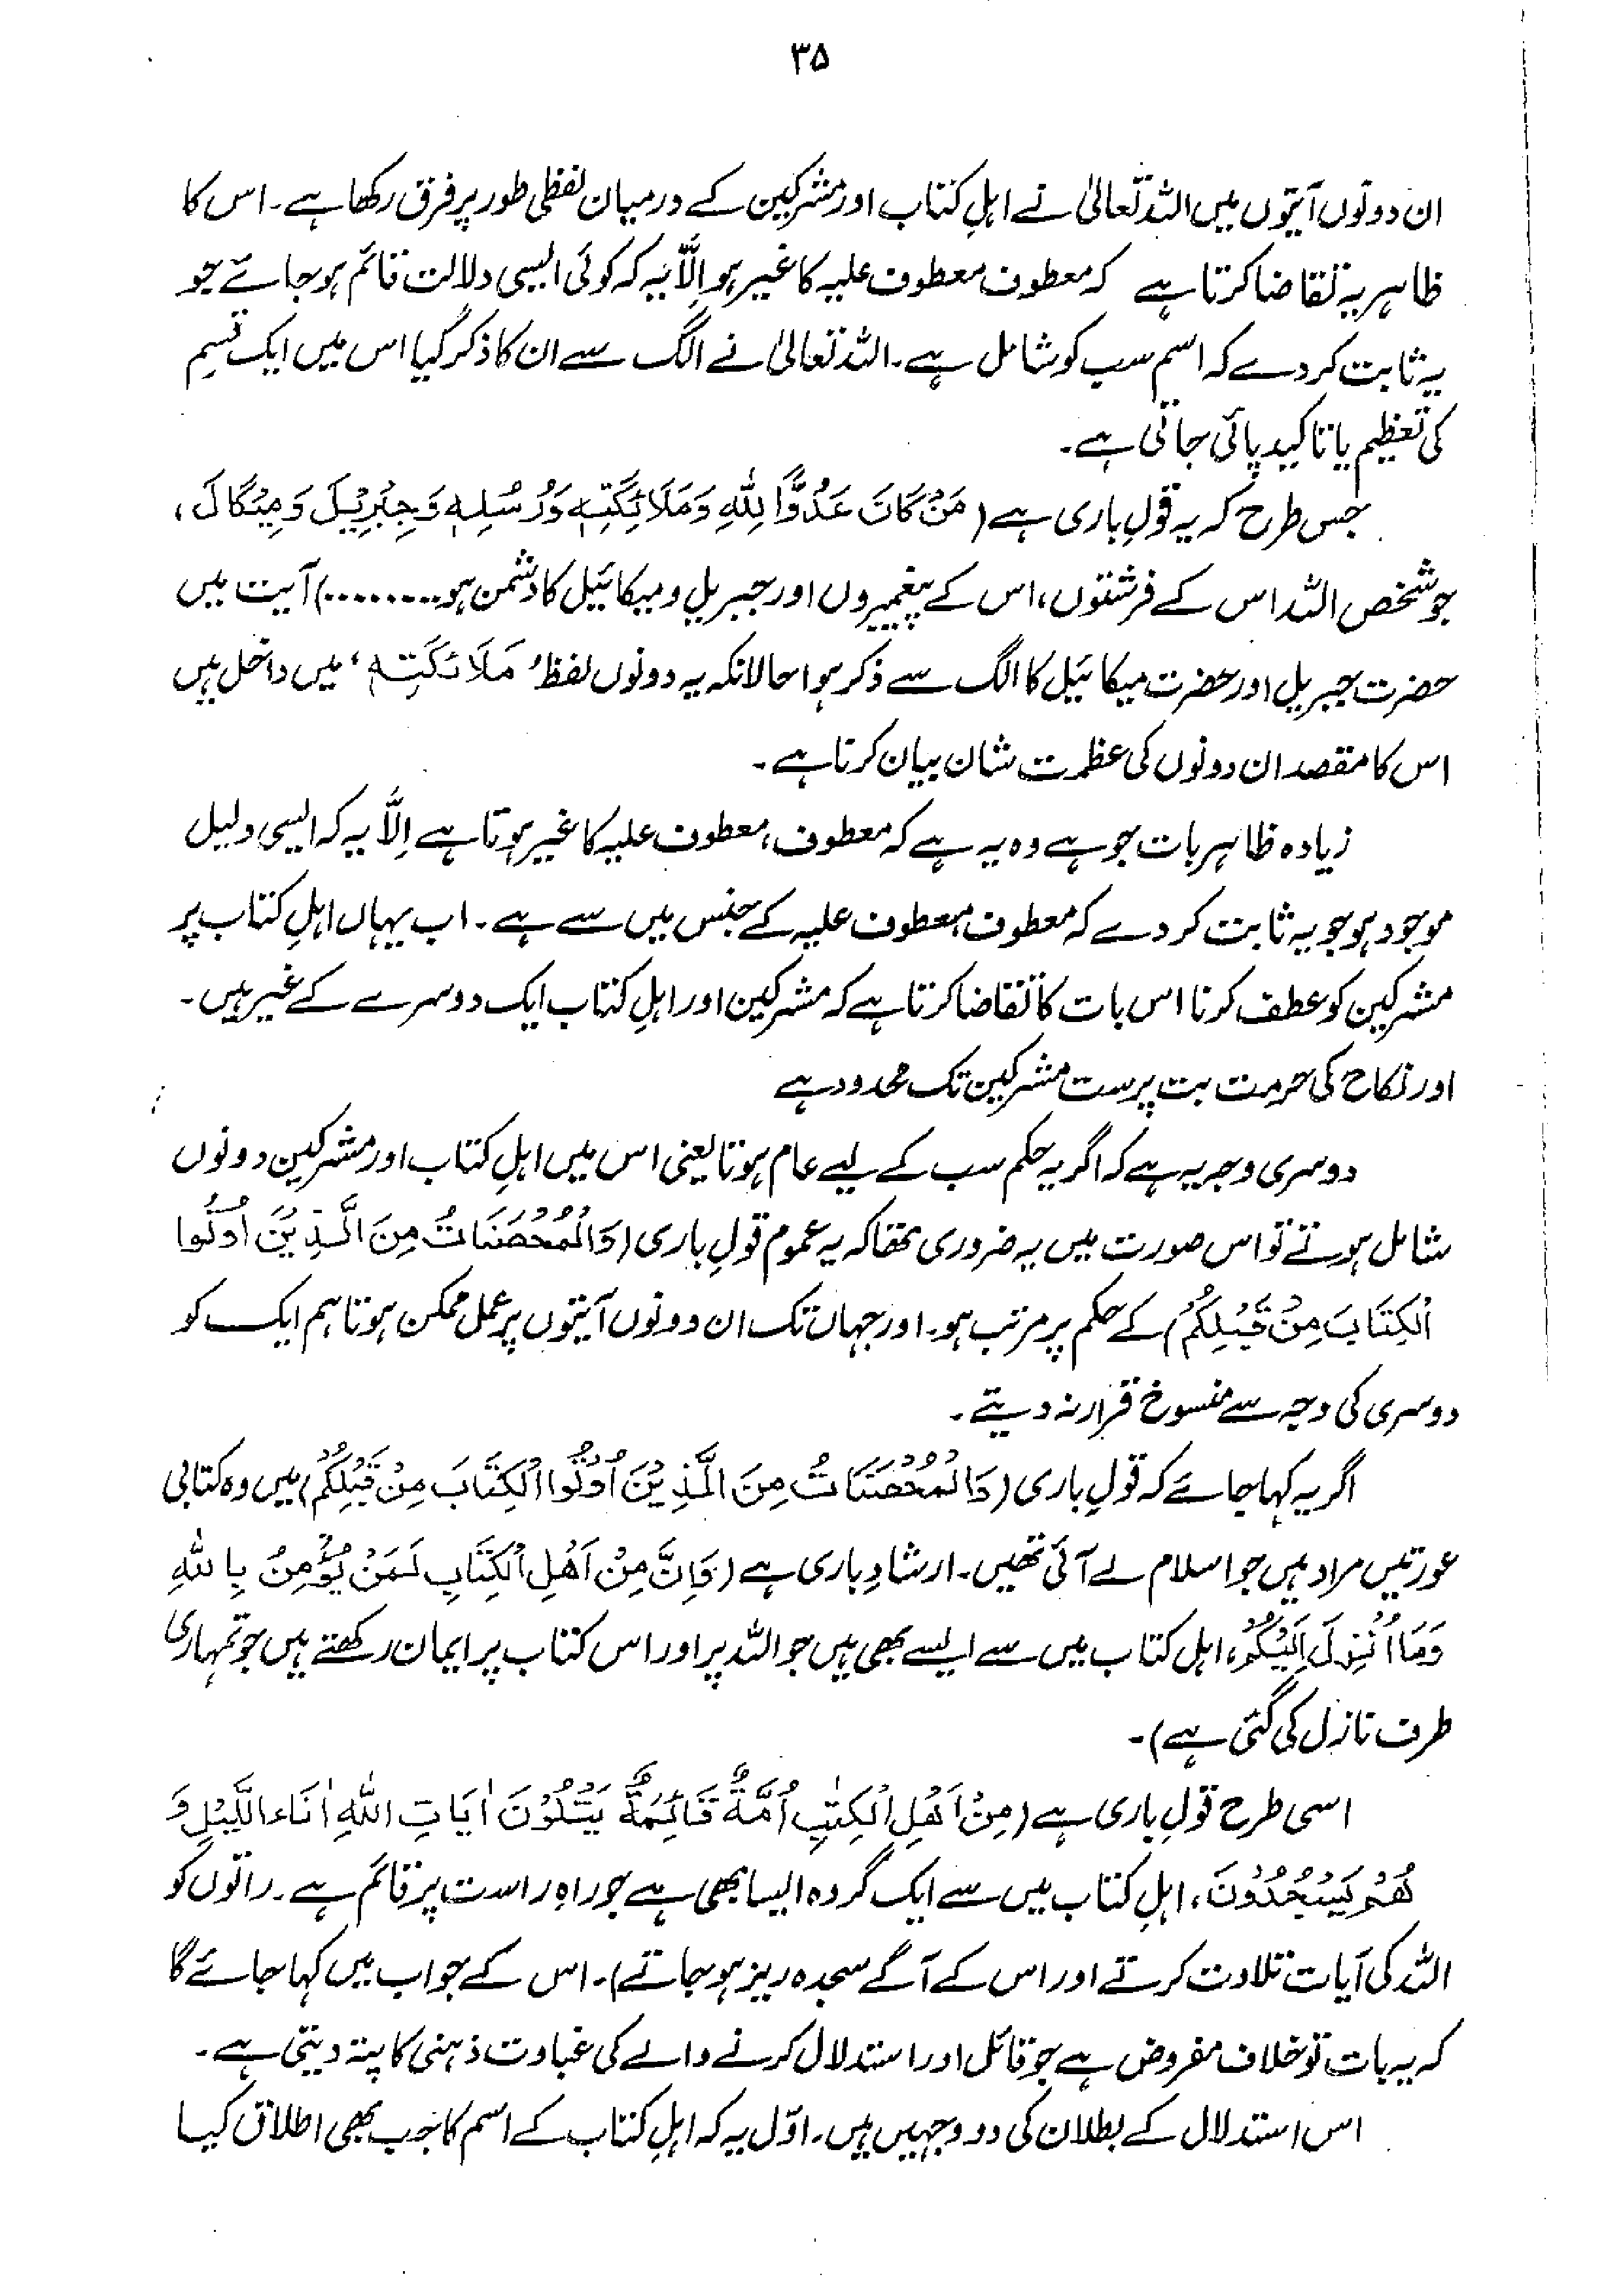 ۳۵
ان دونوں آیتوں میں اللہ تعالیٰ نے اہلِ کتاب اور مشرکین کے درمیان لفظی طور پر فرق رکھا ہے۔ اس کا
ظاہر یہ تقاضا کرتا ہے کہ معطوف معطوف علیہ کا غیر ہو اِلَّا یہ کہ کوئی ایسی دلالت قائم ہو جائے جو
یہ ثابت کر دے کہ اسم سب کو شامل ہے۔ اللہ تعالیٰ نے الگ سے ان کا ذکر کیا اس میں ایک قسم
کی تعظیم یا تاکید پائی جاتی ہے۔
جس طرح کہ یہ قولِ باری ہے (مَنْ كَانَ عَدُوًّا لِلّٰهِ وَمَلَائِكَتِهٖ وَرُسُلِهٖ وَجِبْرِيْلَ وَمِيْكَالَ،
جو شخص اللہ اس کے فرشتوں، اس کے پیغمبروں اور جبریل و میکائیل کا دشمن ہو.........) آیت میں
حضرت جبریل اور حضرت میکائیل کا الگ سے ذکر ہوا حالانکہ یہ دونوں لفظ ’مَلَائكَتِهٖ‘ میں داخل ہیں
اس کا مقصد ان دونوں کی عظمت شان بیان کرنا ہے۔
زیادہ ظاہر بات جو ہے وہ یہ ہے کہ معطوف، معطوف علیہ کا غیر ہوتا ہے اِلَّا یہ کہ ایسی دلیل
موجود ہو جو یہ ثابت کر دے کہ معطوف، معطوف علیہ کے جنس میں سے ہے۔ اب یہاں اہلِ کتاب پر
مشرکین کو عطف کرنا اس بات کا تقاضا کرتا ہے کہ مشرکین اور اہلِ کتاب ایک دوسرے کے غیر ہیں۔
اور نکاح کی حرمت بت پرست مشرکین تک محدود ہے
دوسری وجہ یہ ہے کہ اگر یہ حکم سب کے لیے عام ہوتا یعنی اس میں اہلِ کتاب اور مشرکین دونوں
شامل ہوتے تو اس صورت میں یہ ضروری تھا کہ یہ عموم قولِ باری (وَالْمُحْصَنَاتُ مِنَ الَّذِيْنَ اُوتُوا
الْكِتَابَ مِنْ قَبْلِكُمْ) کے حکم پر مرتب ہو۔ اور جہاں تک ان دونوں آیتوں پر عمل ممکن ہوتا ہم ایک کو
دوسری کی وجہ سے منسوخ قرار نہ دیتے۔
اگر یہ کہا جائے کہ قولِ باری (وَالْمُحْصَنَاتُ مِنَ الَّذِيْنَ اُوْتُوا الْكِتَابَ مِنْ قَبْلِكُمْ) میں وہ کتابی
عورتیں مراد ہیں جو اسلام لے آئی تھیں۔ ارشادِ باری ہے (وَاِنَّ مِنْ اَهْلِ الْكِتَابِ لَمَنْ يُؤْمِنُ بِاللّٰهِ
وَمَا اُنْزِلَ اِلَيْكُمْ، اہل کتاب میں سے ایسے بھی ہیں جو اللہ پر اور اس کتاب پر ایمان رکھتے ہیں جو تمہاری
طرف نازل کی گئی ہے)۔
اسی طرح قولِ باری ہے (مِنْ اَهْلِ الْكِتٰبِ اُمَّةٌ قَائِمَةٌ يَتْلُوْنَ اٰيَاتِ اللّٰهِ اٰنَاءَ اللَّيْلِ وَ
هُمْ يَسْجُدُوْنَ، اہلِ کتاب میں سے ایک گروہ ایسا بھی ہے جو راہِ راست پر قائم ہے۔ راتوں کو
اللہ کی آیات تلاوت کرتے اور اس کے آگے سجدہ ریز ہو جاتے)۔ اس کے جواب میں کہا جائے گا
کہ یہ بات تو خلاف مفروض ہے جو قائل اور استدلال کرنے والے کی غباوت ذہنی کا پتہ دیتی ہے۔
اس استدلال کے بطلان کی دو وجہیں ہیں۔ اوّل یہ کہ اہلِ کتاب کے اسم کا جب بھی اطلاق کیا